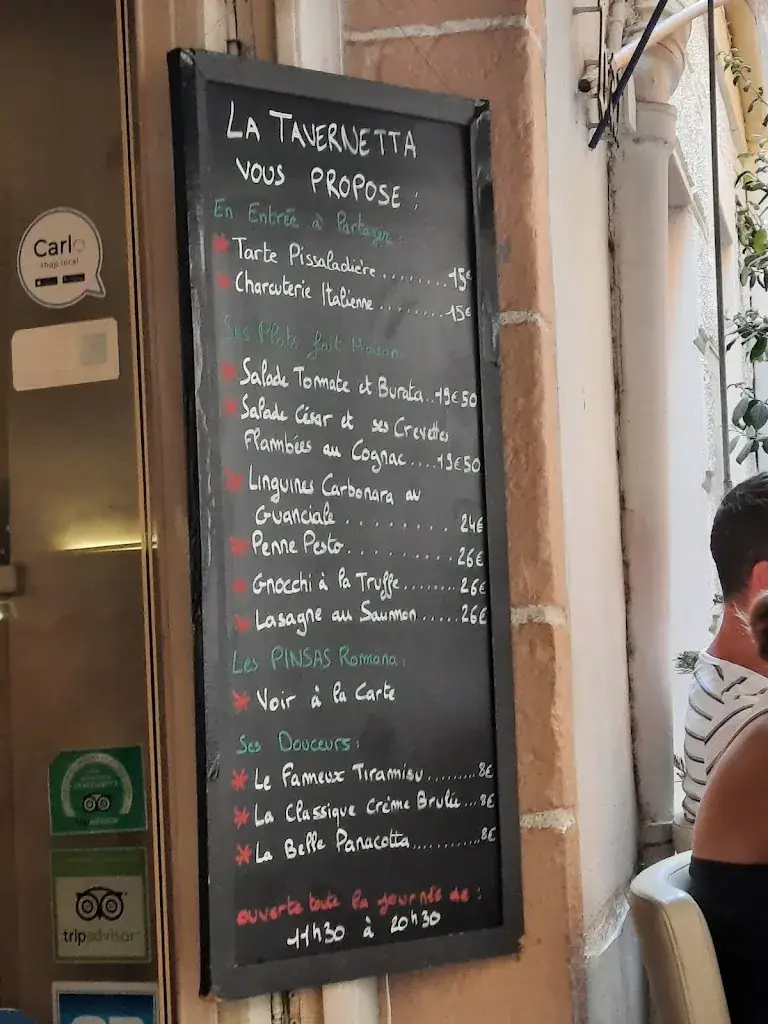 LA TAVERNETTA
VOUS PROPOSE :
En Entrée à Partager :
* Tarte Pissaladière ........ 15€
* Charcuterie Italienne ........ 15€
Ses Plats fait Maison
* Salade Tommate et Burata.. 19€50
* Salade César et ses Crevettes
Flambées au Cognac .... 19€50
* Linguines Carbonara au
Guanciale ......... 24€
* Penne Pesto .......... 26€
* Gnocchi à la Truffe ........ 26€
* Lasagne au Saumon ..... 26€
Les PINSAS Romana :
* Voir à la Carte
Ses Douceurs :
* Le Fameux Tiramisu ......... 8€
* La Classique Crème Brulée ... 8€
* La Belle Panacotta ............ 8€
ouverte toute la journée de :
11h30 à 20h30
Carlo
shop local
tripadvisor